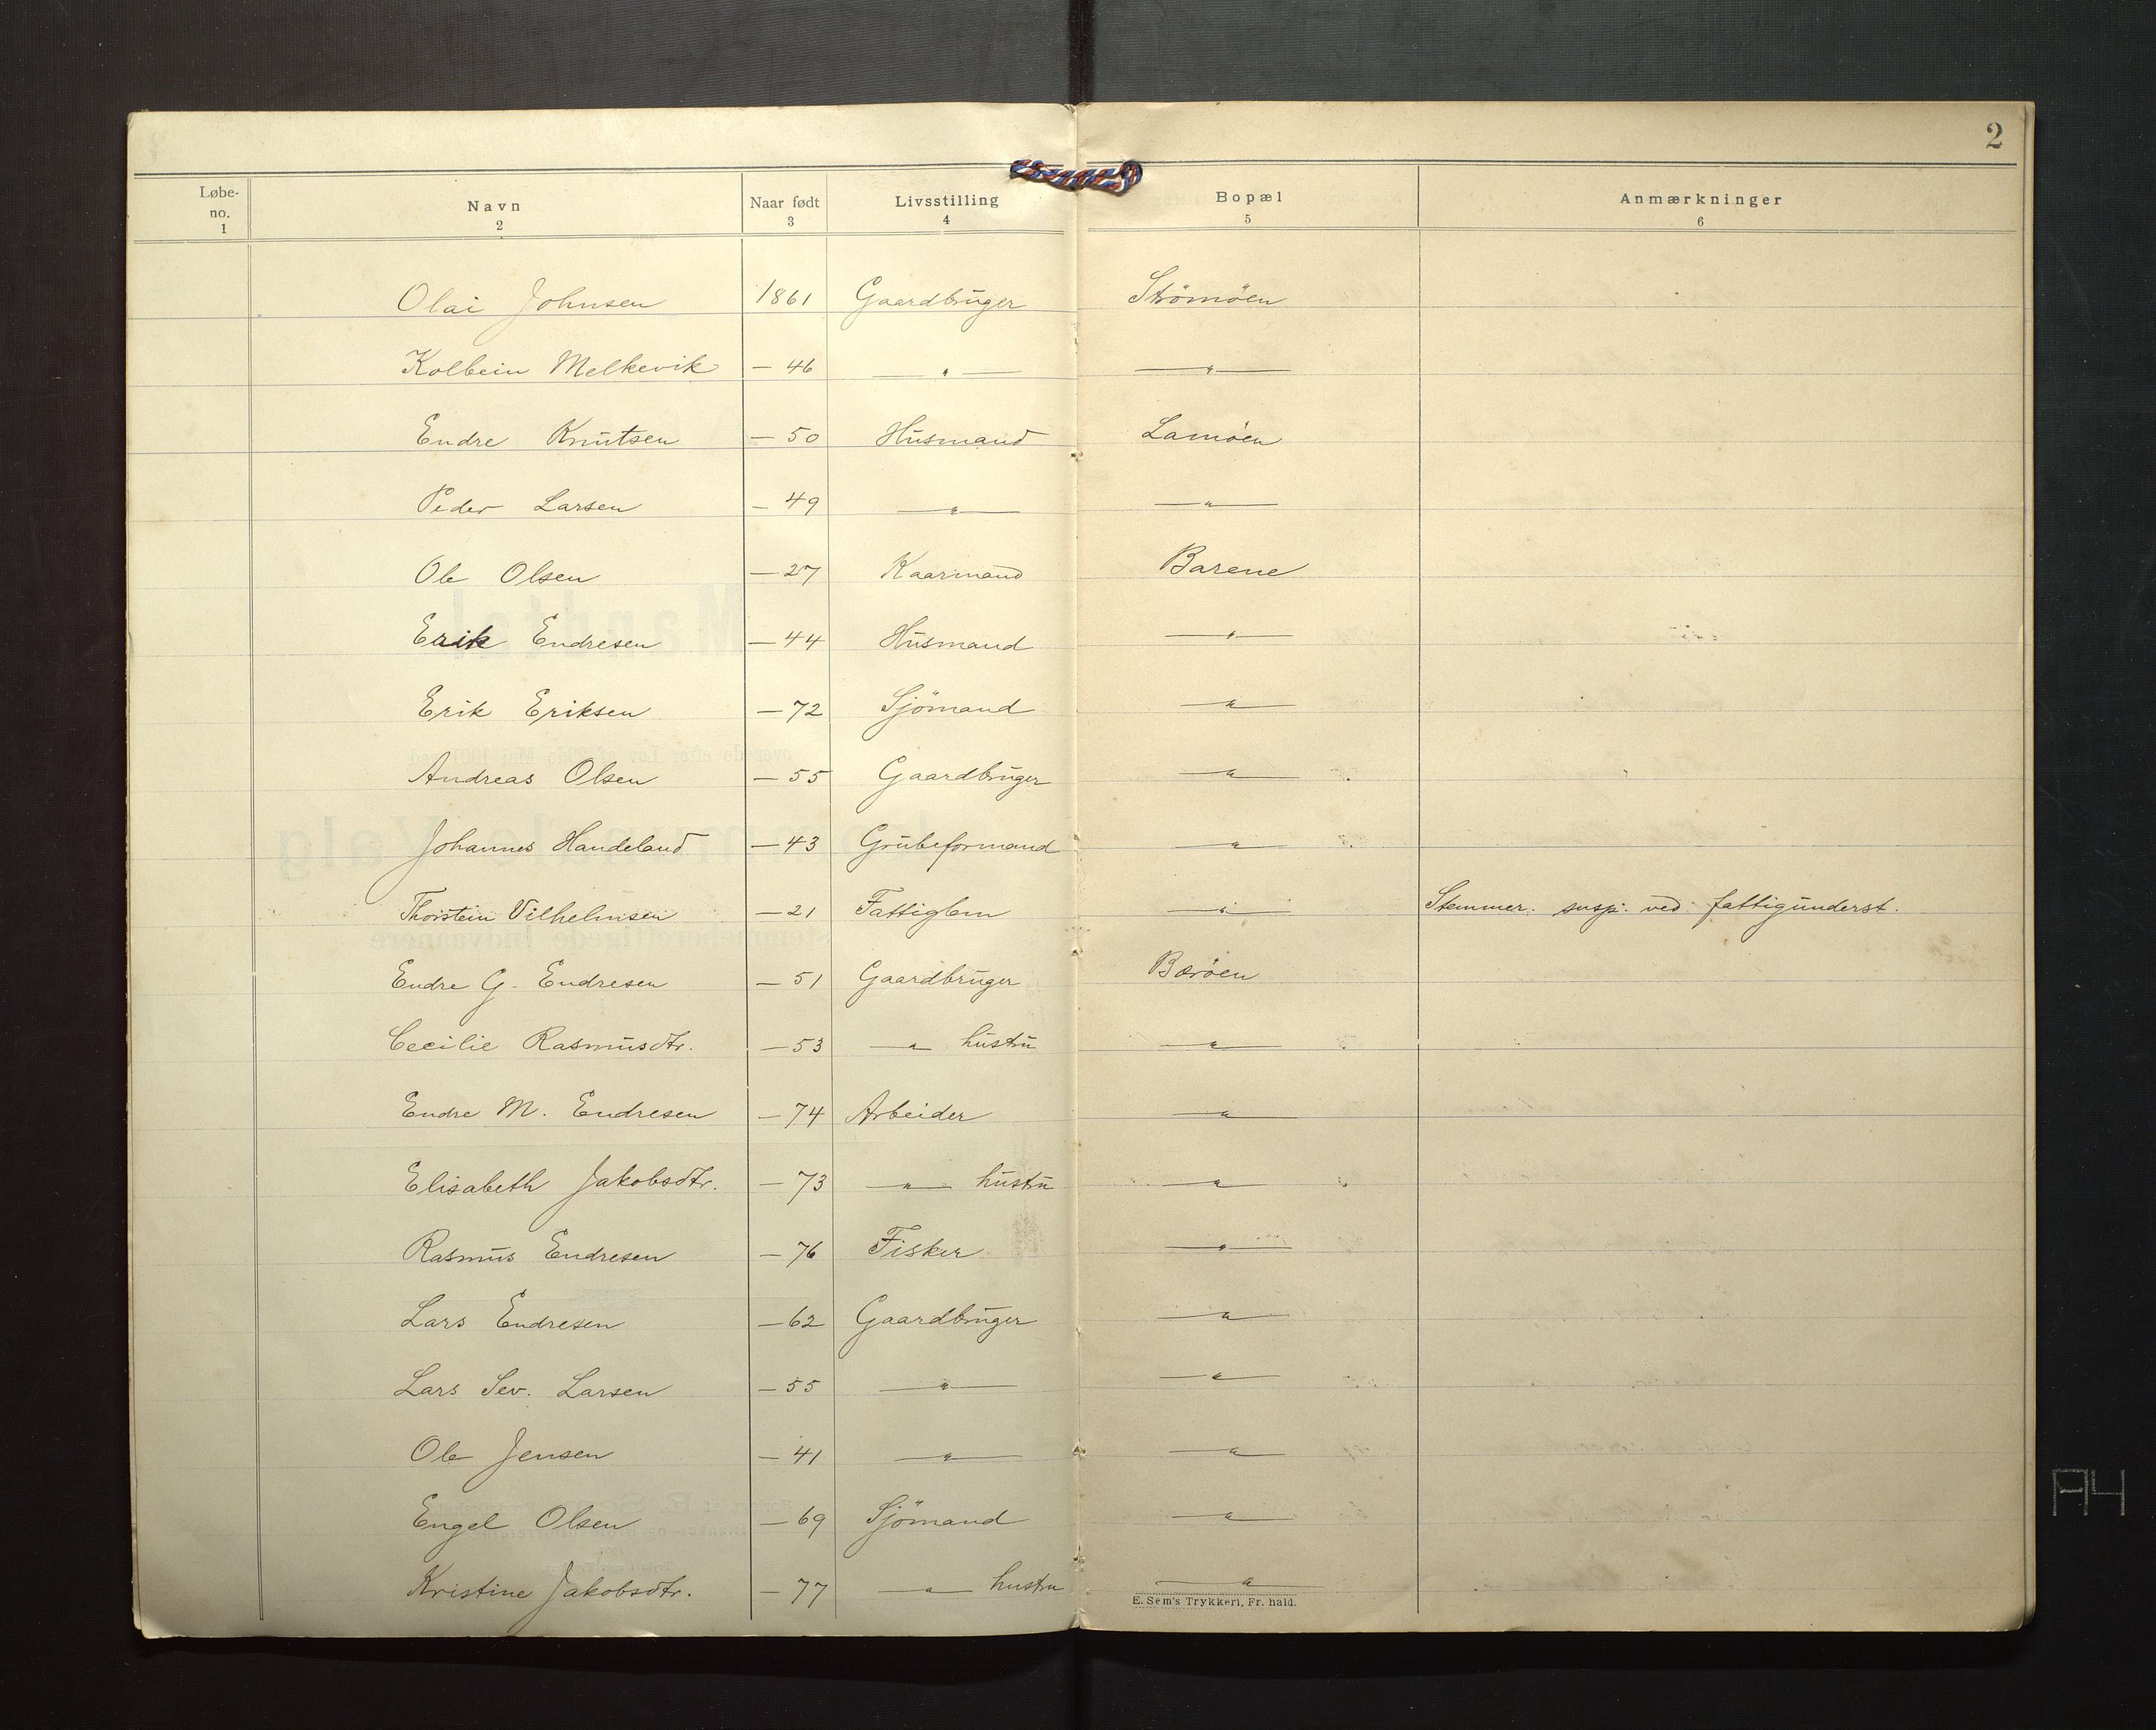 2
Løbe-no. 1 Navn 2 Naar født 3 Livsstilling 4 Bopæl 5 Anmærkninger 6
Olai Johnsen 1861 Gaardbruger Strömöen
Kolbein Melkevik — 46 — " — — " —
Endre Knutsen — 50 Husmand Lamöen
Peder Larsen — 49 — " — — " —
Ole Olsen — 27 Kaarmand Barene
Erik Endresen — 44 Husmand — " —
Erik Eriksen — 72 Sjömand — " —
Andreas Olsen — 55 Gaardbruger — " —
Johannes Handeland — 43 Grubeformand — " —
Thorstein Vilhelmsen — 21 Fattiglem — " — Stemmer. susp. ved fattigunderst.
Endre G. Endresen — 51 Gaardbruger Boröen
Cecilie Rasmusdtr. — 53 — " — hustru — " —
Endre M. Endresen — 74 Arbeider — " —
Elisabeth Jakobsdtr. — 73 — " — hustru — " —
Rasmus Endresen — 76 Fisker — " —
Lars Endresen — 62 Gaardbruger — " —
Lars Sev. Larsen — 55 — " — — " —
Ole Jensen — 41 — " — — " —
Engel Olsen — 69 Sjömand — " —
Kristine Jakobsdtr. — 77 — " — hustru — " —
E. Sem's Trykkeri, Fr. hald.
A4